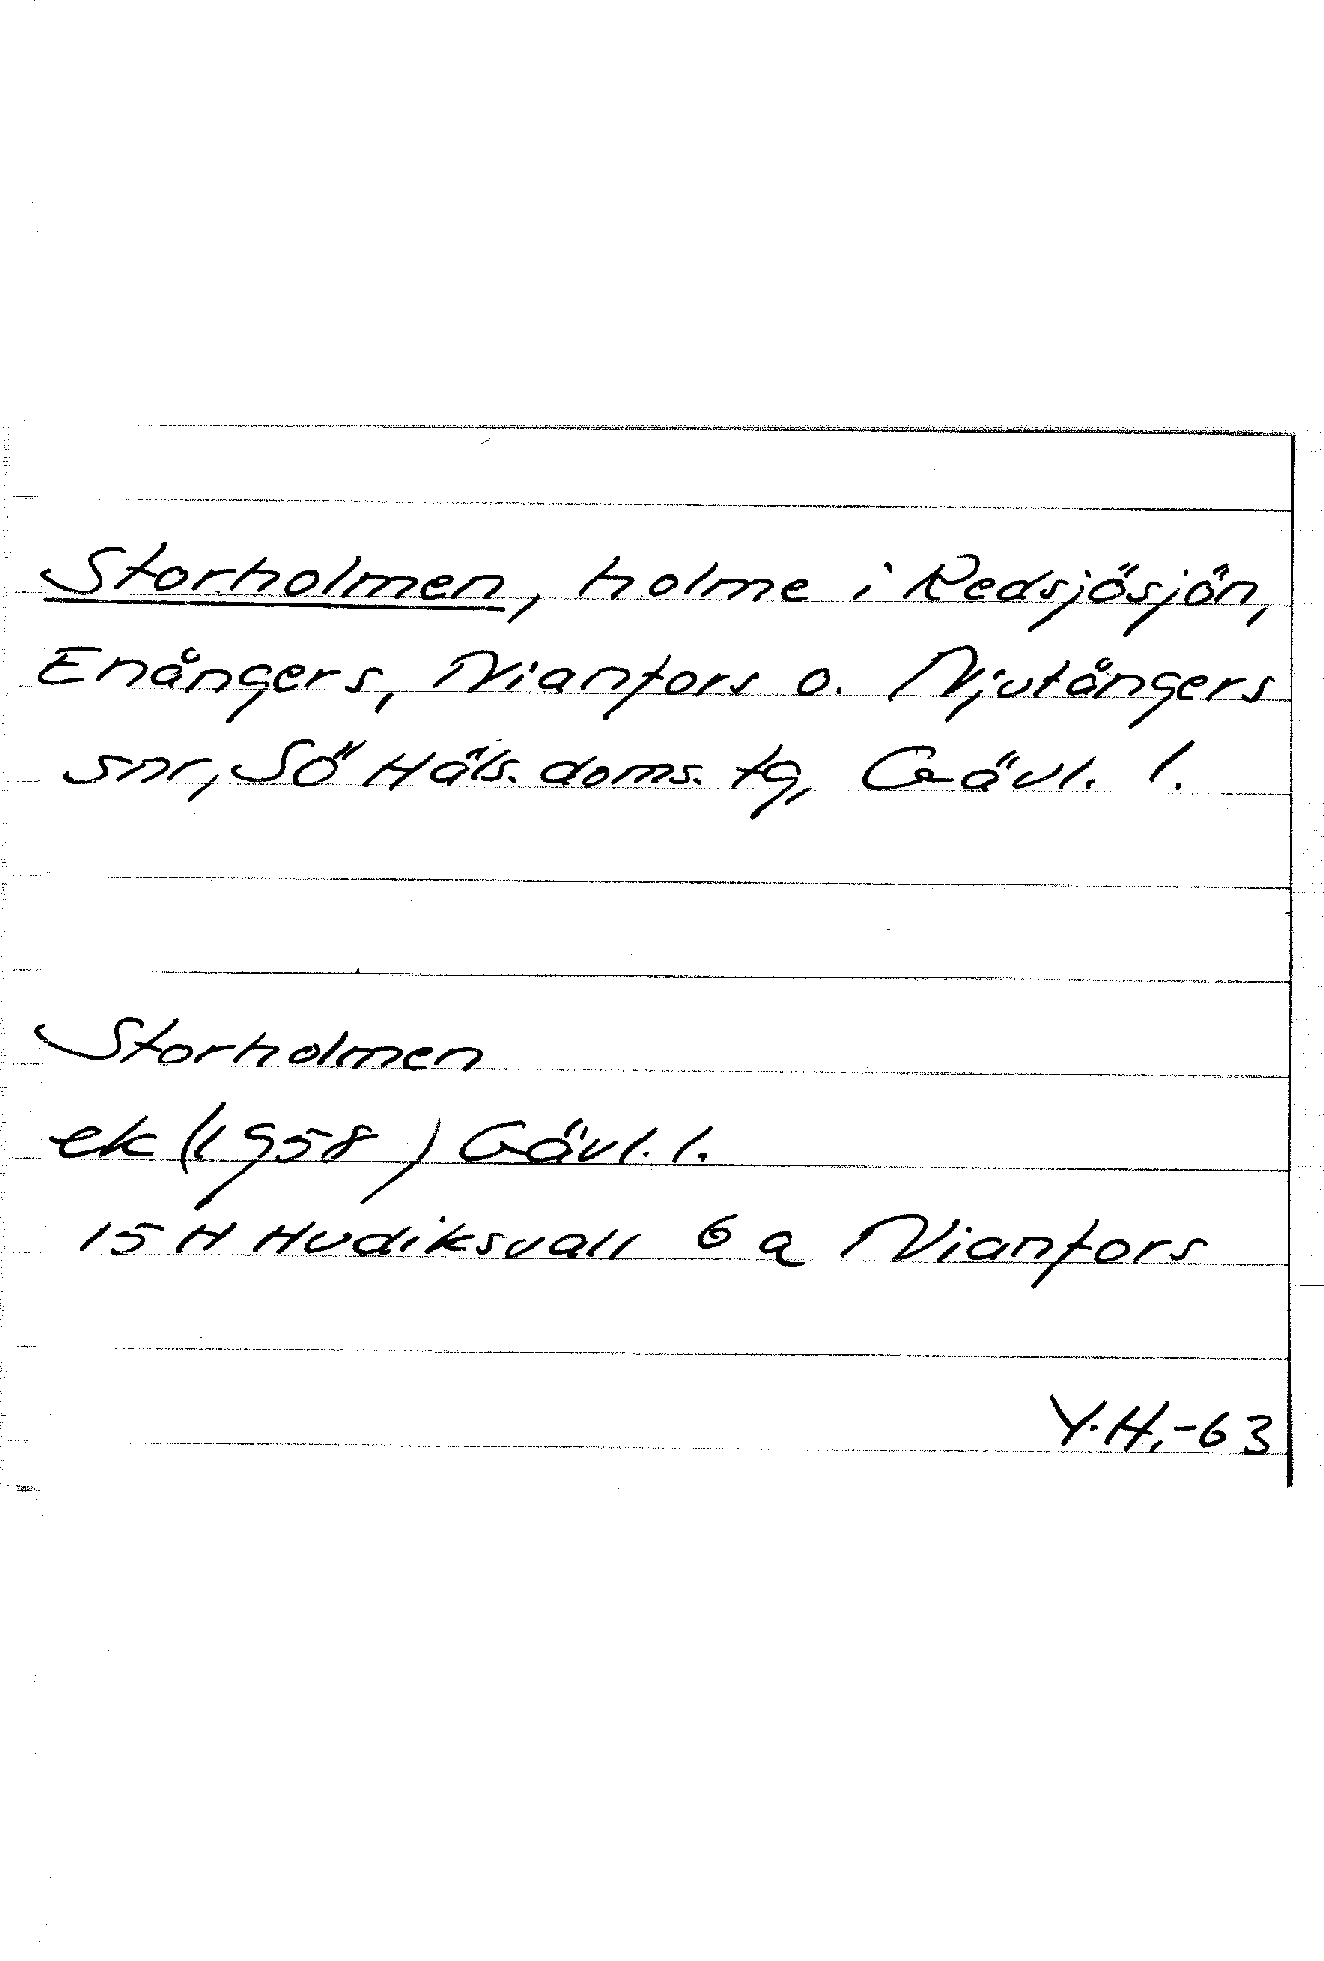 Storholmen, holme i Redsjösjön,
Enångers, Nianfors o. Njutångers
snr, Sö Häls. doms. tg, Gävl. l.
Storholmen
ek (1958) Gävl. l.
15 H Hudiksvall 6 a Nianfors
Y.H.-63